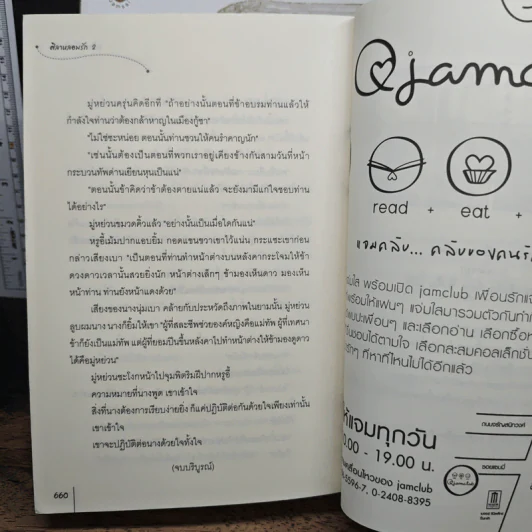 ศิลาหลอมรัก 2
มู่หย่วนครุ่นคิดอีกที "ถ้าอย่างนั้นตอนที่ข้าอบรมท่านแล้วให้
กำลังใจท่านว่าต้องกล้าหาญในเมืองกู้ซา"
"ไม่ใช่ซะหน่อย ตอนนั้นท่านชวนให้คนรำคาญนัก"
"เช่นนั้นต้องเป็นตอนที่พวกเราอยู่เคียงข้างกันสามวันที่หน้า
กระบวนทัพด่านเยียนหุนเป็นแน่"
"ตอนนั้นข้าคิดว่าข้าต้องตายแน่แล้ว จะยังมามีแก่ใจชอบท่าน
ได้อย่างไร"
มู่หย่วนขมวดคิ้วแล้ว "อย่างนั้นเป็นเมื่อใดกันแน่"
หรูอี้เม้มปากแอบยิ้ม กอดแขนขวาเขาไว้แน่น กระแซะเขาก่อน
กล่าวเสียงเบา "เป็นตอนที่ท่านทำหน้าต่างบนหลังคากระโจมให้ข้า
ดวงดาวเวลานั้นสวยยิ่งนัก หน้าต่างเล็กๆ ข้ามองเห็นดาว มองเห็น
หน้าท่าน ท่านยังหน้าแดงด้วย"
เสียงของนางนุ่มเบา คล้ายกับประหวัดถึงภาพในยามนั้น มู่หย่วน
ลูบผมนาง นางก็ยิ้มให้เขา "ผู้ที่สละชีพช่วยองค์หญิงคือแม่ทัพ ผู้ที่เทศนา
ข้าก็ยังเป็นแม่ทัพ แต่ผู้ที่ยอมปีนขึ้นหลังคาไปทำหน้าต่างให้ข้ามองดูดาว
ได้คือมู่หย่วน"
มู่หย่วนชะโงกหน้าไปจุมพิตริมฝีปากหรูอี้
ความหมายที่นางพูด เขาเข้าใจ
สิ่งที่นางต้องการเรียบง่ายยิ่ง ก็แค่ปฏิบัติต่อกันด้วยใจเพียงเท่านั้น
เขาเข้าใจ
เขาจะปฏิบัติต่อนางด้วยใจทั้งใจ
(จบบริบูรณ์)
660
jamc
read + eat +
แจมคลับ... คลับของคนรั
ใส พร้อมเปิด jamclub เพื่อนรักแจ
พร้อมให้แฟนๆ แจ่มใสมารวมตัวกันทำ
เพื่อนๆ และเลือกอ่าน เลือกซื้อห
ชอบได้ตามใจ เลือกสะสมคอลเล็กชั่น
รักๆ ที่หาที่ไหนไม่ได้อีกแล้ว
ห้แจมทุกวัน
.00 - 19.00 น.
คลื่อนไหวของ jamclub
5596-7, 0-2408-8395
ถนนจรัญสนิทวงศ์
jamclub